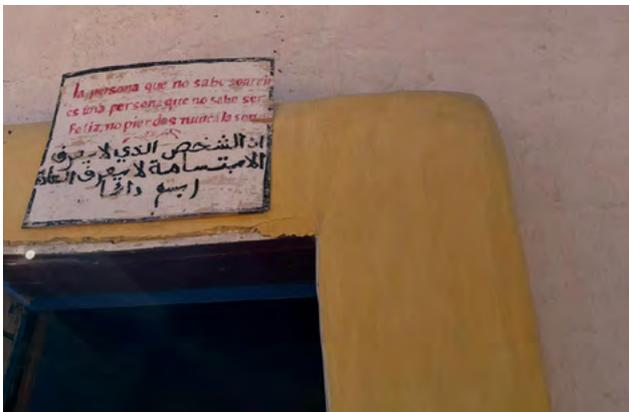 la persona que no sabe sonreir
es una persona que no sabe ser
Feliz, no pierdas nunca la sonrisa
ان الشخص الذي لا يعرف
الابتسامة لا يعرف السعادة
ابسم دائما